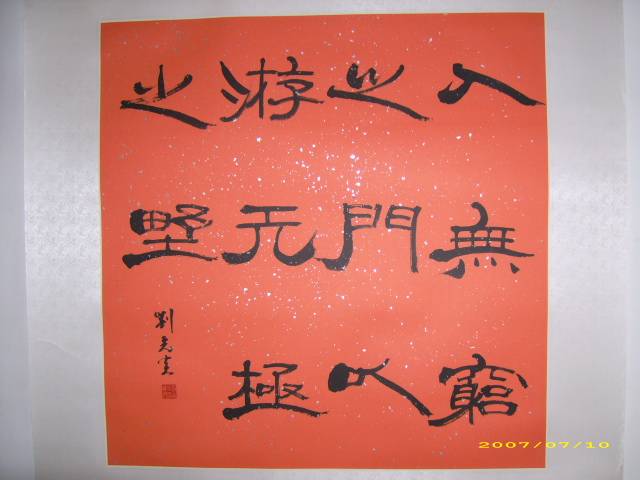 入無窮
之門以
游无極
之野
劉
2007/07/10